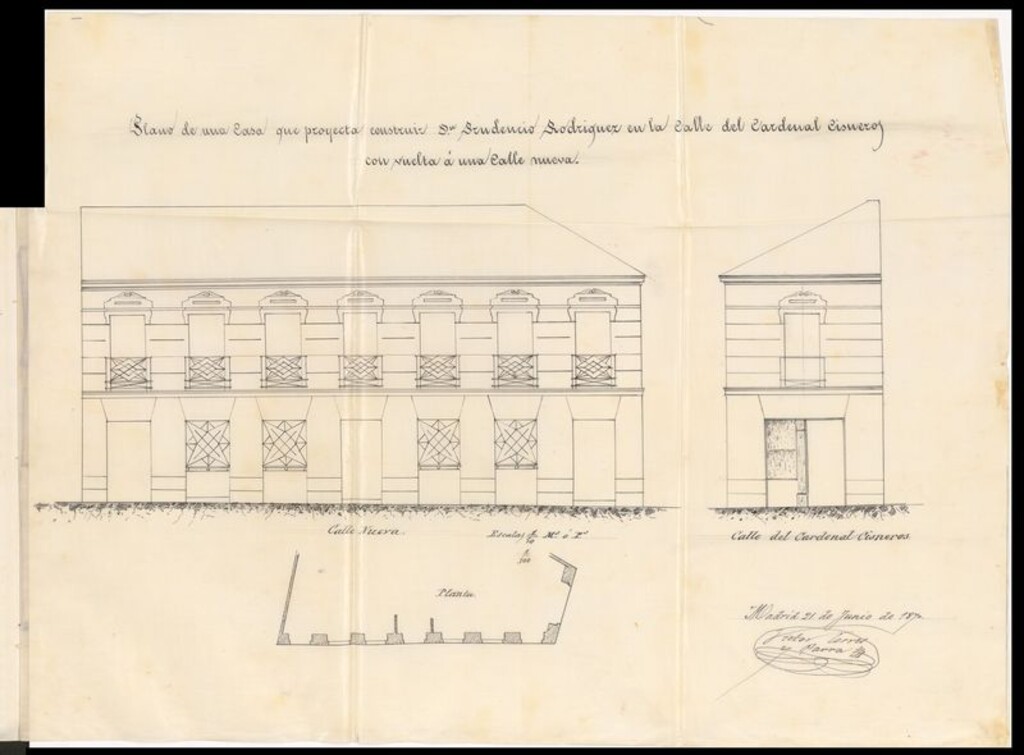 Plano de una Casa que proyecta construir Dn Prudencio Rodriguez en la Calle del Cardenal Cisneros
con vuelta á una Calle nueva.
Calle Nueva.
Escalas 1/50 Ms. ó Po
1/100
Calle del Cardenal Cisneros
Planta
Madrid 21 de Junio de
y Parra